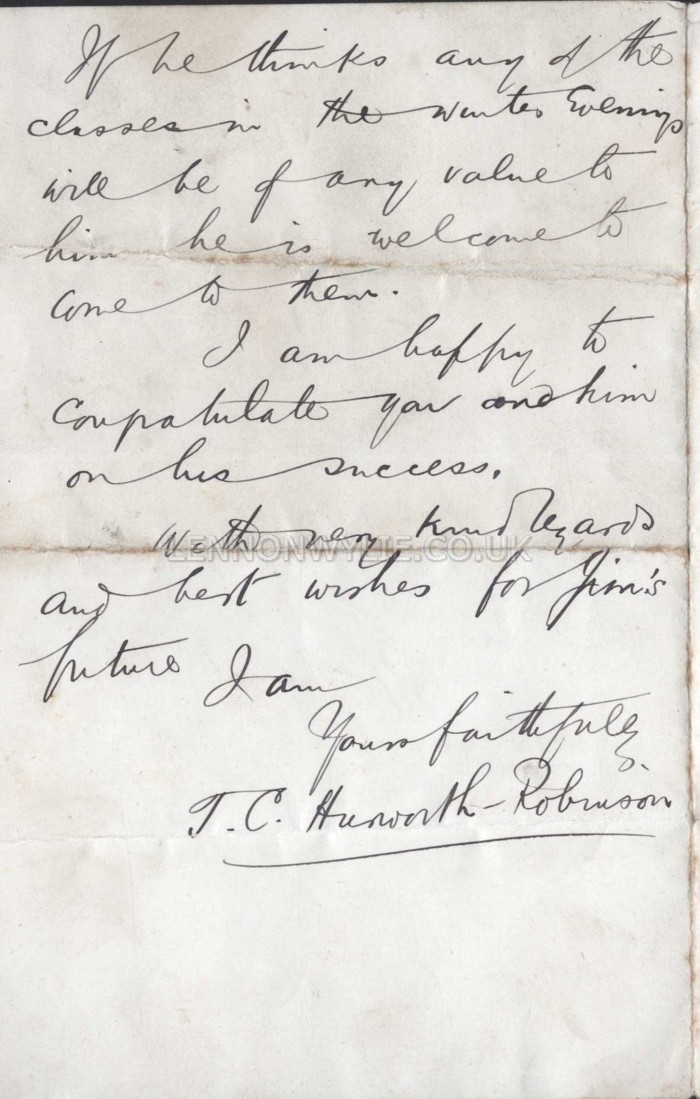 If he thinks any of the
classes in the winter Evenings
will be of any value to
him he is welcome to
come to them.
I am happy to
congratulate you and him
on his success.
With very kind regards
LENNONWYLIE.CO.UK
and best wishes for Jim's
future I am
Yours faithfully
T. C. Hurworth-Robinson